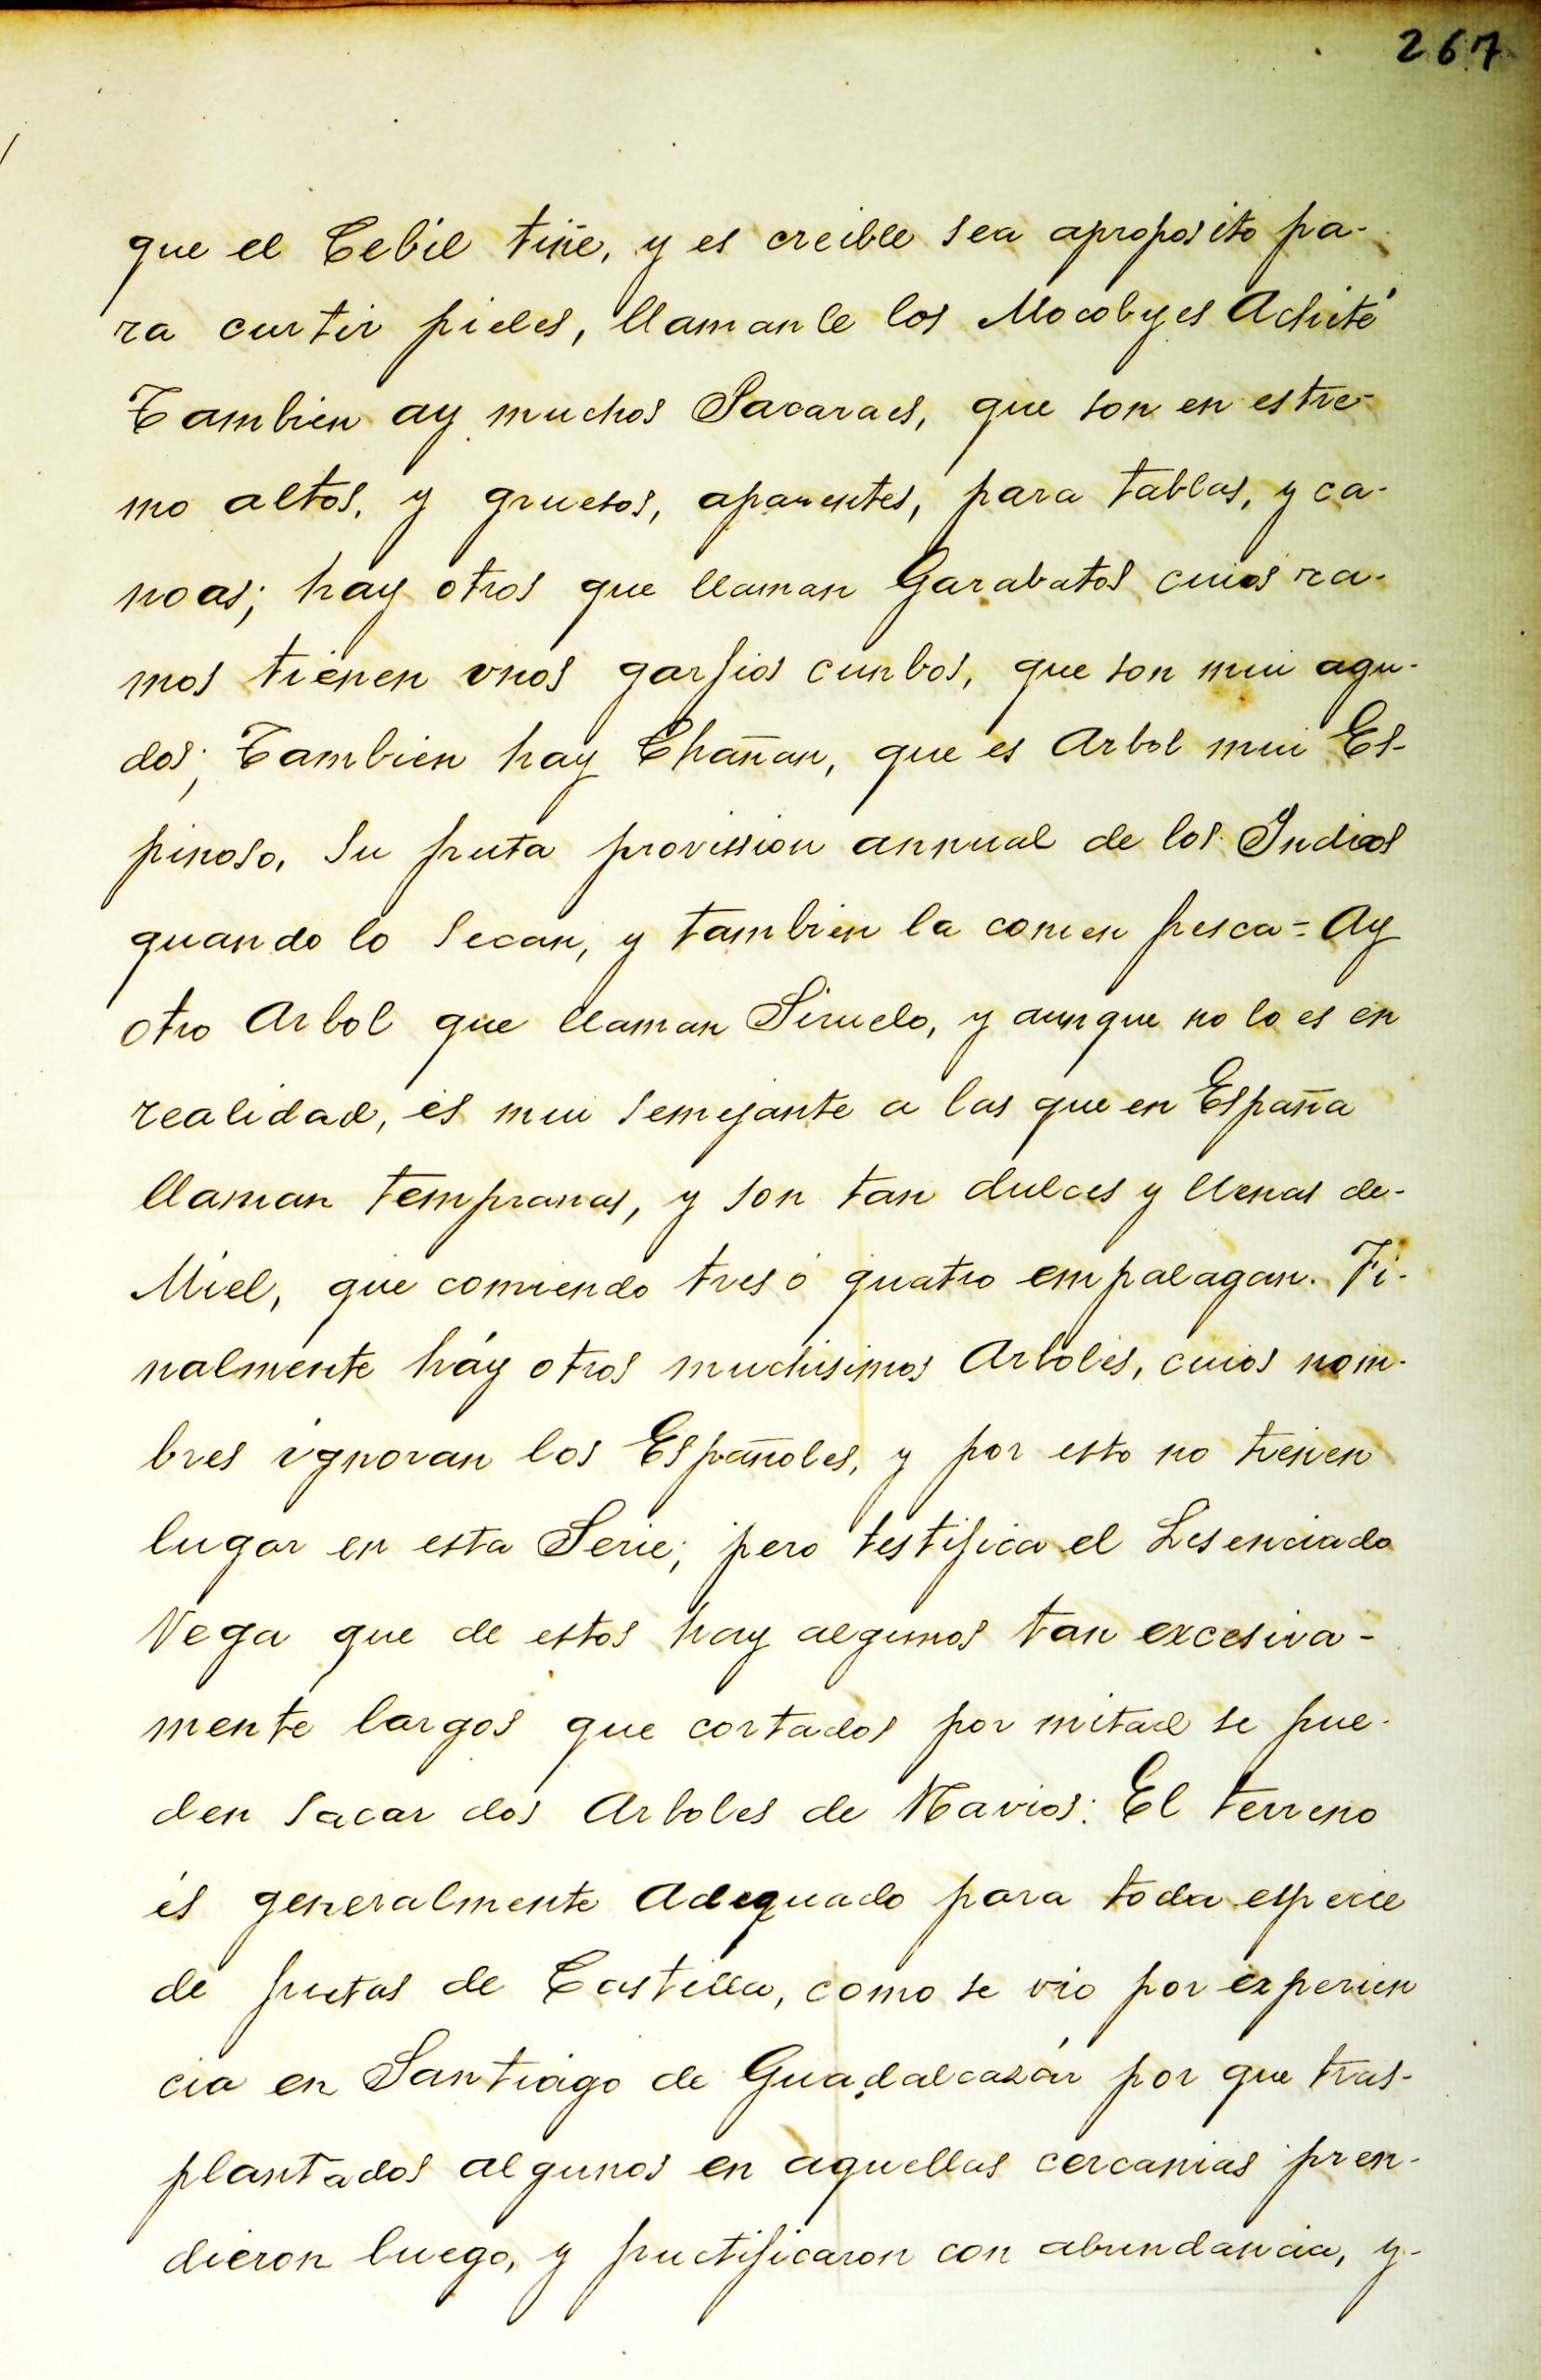 267
que el Cebil tiñe, y es creible sea aproposito pa-
ra curtir pieles, llamanle los Mocobyes Achité
Tambien ay muchos Pacaraes, que son en estre-
mo altos, y gruesos, aparentes, para tablas, y ca-
noas; hay otros que llaman Garabatos cuios ra-
mos tienen vnos garfios curbos, que son mui agu-
dos; Tambien hay Chañan, que es Arbol mui Es-
pinoso, su fruta provission annual de los Indios
quando lo secan, y tambien la comen fresca = Ay
otro Arbol que llaman Siruelo, y aunque no lo es en
realidad, es mui semejante a las que en España
llaman tempranas, y son tan dulces y llenas de-
Miel, que comiendo tres ó quatro empalagan. Fi-
nalmente háy otros muchisimos Arboles, cuios nom-
bres ignoran los Españoles, y por esto no tienen
lugar en esta Serie; pero testifica el Lisenciado
Vega que de estos hay algunos tan excesiva-
mente largos que cortados por mitad se pue-
den sacar dos Arboles de Navios: El terreno
és generalmente Adequado para toda especie
de frutas de Castilla, como se vio por experien
cia en Santiago de Guadalcazár por que tras-
plantados algunos en aquellas cercanias pren-
dieron luego, y fructificaron con abundancia, y-